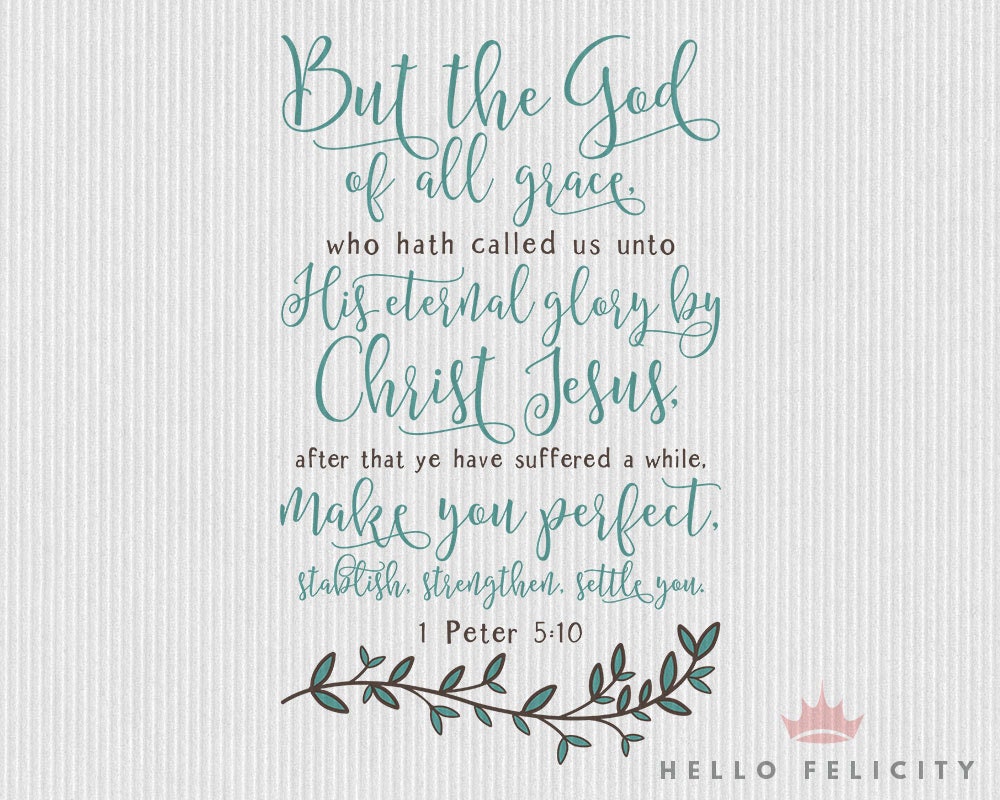 But the God
of all grace,
who hath called us unto
His eternal glory by
Christ Jesus,
after that ye have suffered a while,
make you perfect,
stablish, strengthen, settle you.
1 Peter 5:10
HELLO FELICITY